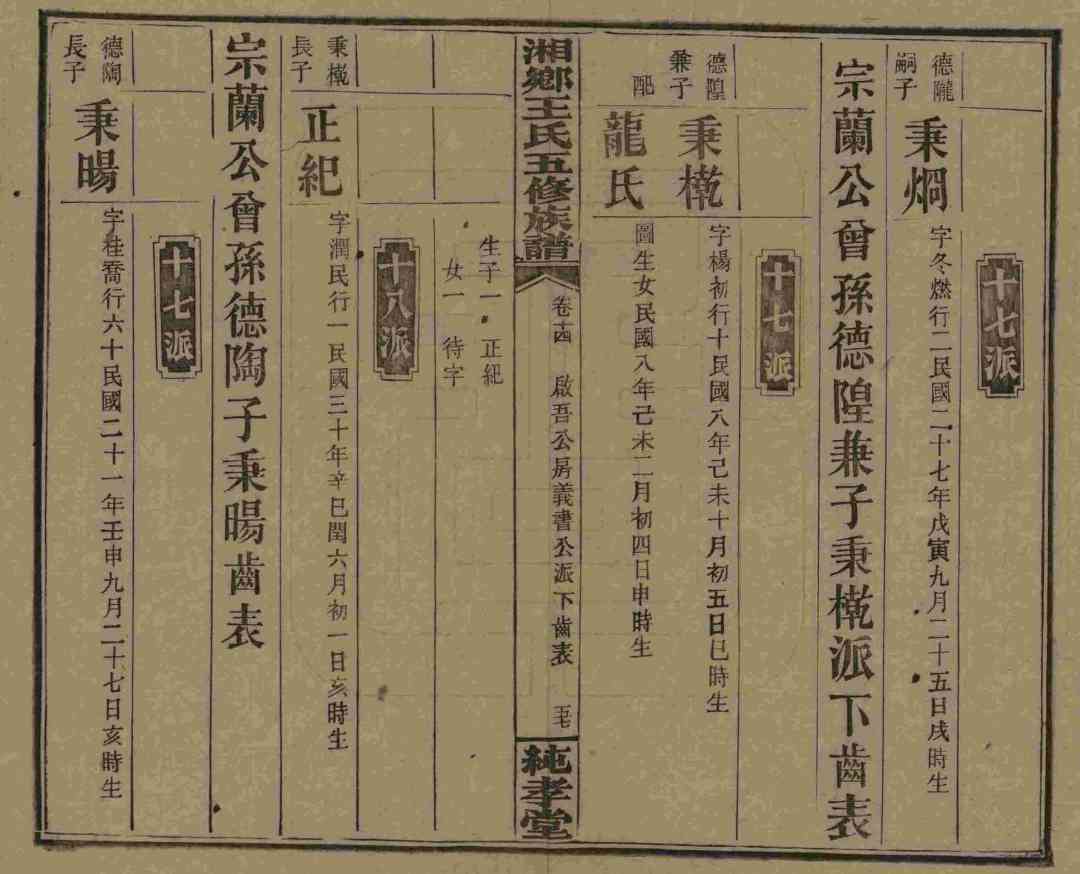 十七派
德隴嗣子
秉炯
字冬燃行二民國二十七年戊寅九月二十五日戌時生
宗蘭公曾孫德隍兼子秉㰸派下齒表
十七派
德隍兼子
秉㰸
字楊初行十民國八年己未十月初五日巳時生
配
龍氏
圖生女民國八年己未二月初四日申時生
生子一 正紀
女一 待字
湘鄉王氏五修族譜
卷十四 啟吾公房義書公派下齒表
純孝堂
十八派
秉㰸長子
正紀
字潤民行一民國三十年辛巳閏六月初一日亥時生
宗蘭公曾孫德陶子秉暘齒表
十七派
德陶長子
秉暘
字桂喬行六十民國二十一年壬申九月二十七日亥時生